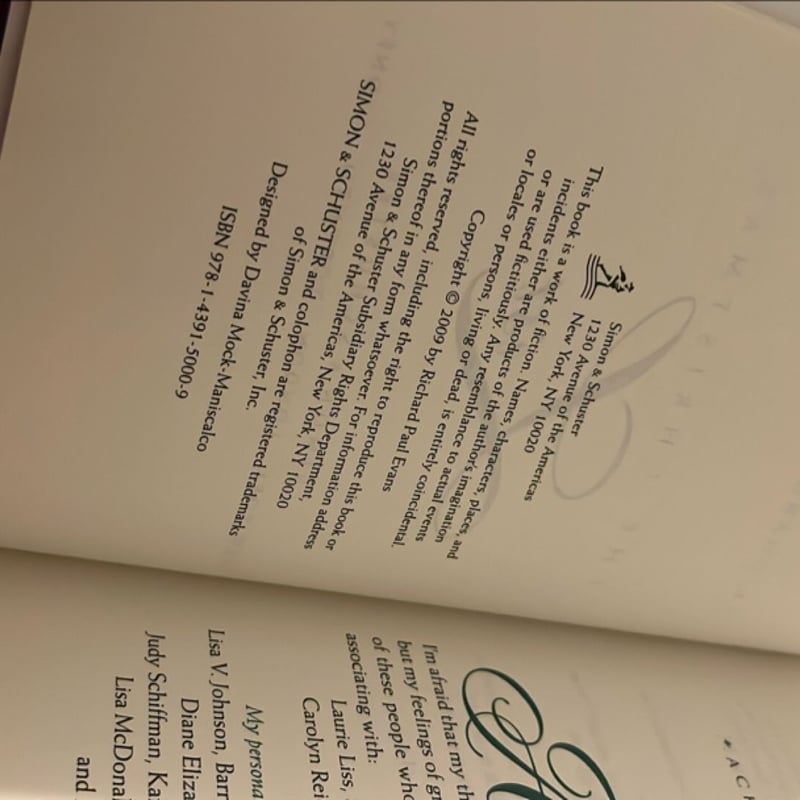 Simon & Schuster
1230 Avenue of the Americas
New York, NY 10020
This book is a work of fiction. Names, characters, places, and
incidents either are products of the author's imagination
or are used fictitiously. Any resemblance to actual events
or locales or persons, living or dead, is entirely coincidental.
Copyright © 2009 by Richard Paul Evans
All rights reserved, including the right to reproduce this book or
portions thereof in any form whatsoever. For information address
Simon & Schuster Subsidiary Rights Department,
1230 Avenue of the Americas, New York, NY 10020
SIMON & SCHUSTER and colophon are registered trademarks
of Simon & Schuster, Inc.
Designed by Davina Mock-Maniscalco
ISBN 978-1-4391-5000-9
I'm afraid that my
but my feelings of
of these people
associating with:
Laurie Liss,
Carolyn
My
Lisa V. Johnson,
Diane
Judy Schiffman,
Lisa
and